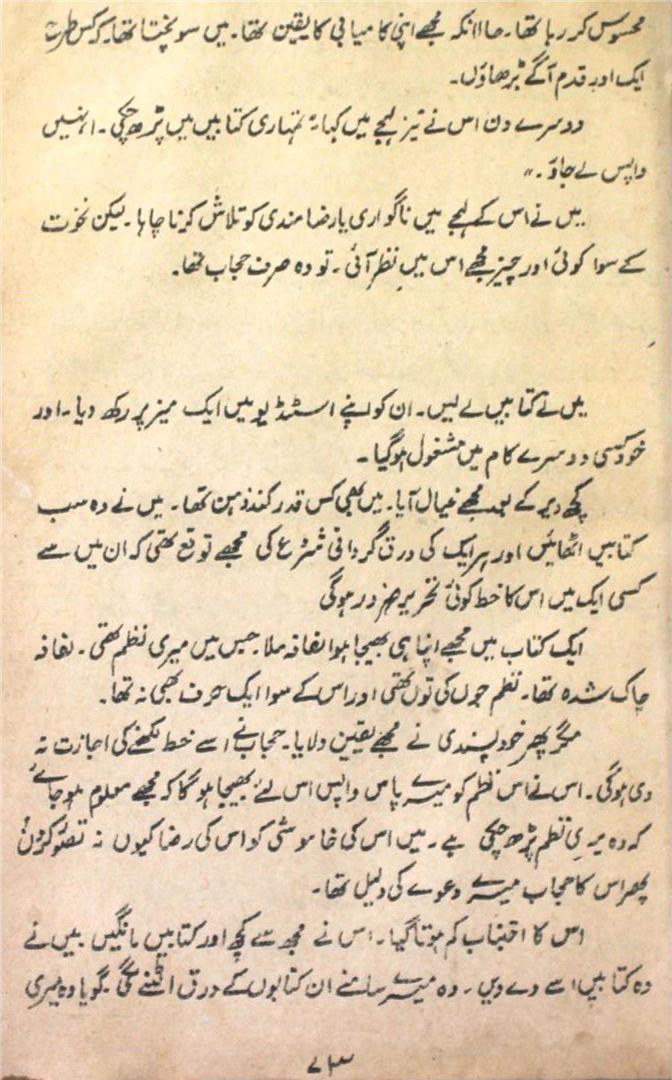 محسوس کر رہا تھا۔ حالانکہ مجھے اپنی کامیابی کا یقین تھا۔ میں سوچتا تھا۔ کہ کس طرح
ایک اور قدم آگے بڑھاؤں۔
دوسرے دن اس نے تیز لہجے میں کہا "تمہاری کتابیں میں پڑھ چکی۔ انہیں
واپس لے جاؤ۔"
میں نے اس کے لہجے میں ناگواری یا رضامندی کو تلاش کرنا چاہا۔ لیکن نخوت
کے سوا کوئی اور چیز مجھے اس میں نظر آئی۔ تو وہ صرف حجاب تھا۔
میں نے کتابیں لے لیں۔ ان کو اپنے اسٹڈیو میں ایک میز پر رکھ دیا۔ اور
خود کسی دوسرے کام میں مشغول ہو گیا۔
کچھ دیر کے بعد مجھے خیال آیا۔ میں بھی کس قدر کند ذہن تھا۔ میں نے وہ سب
کتابیں اٹھائیں اور ہر ایک کی ورق گردانی شروع کی مجھے توقع تھی کہ ان میں سے
کسی ایک میں اس کا خط کوئی تحریر ضرور ہوگی
ایک کتاب میں مجھے اپنا ہی بھیجا ہوا لفافہ ملا۔ جس میں میری نظم تھی۔ لفافہ
چاک شدہ تھا۔ نظم جوں کی توں تھی اور اس کے سوا ایک حرف بھی نہ تھا۔
مگر پھر خود پسندی نے مجھے یقین دلایا۔ حجاب نے اسے خط لکھنے کی اجازت نہ
دی ہوگی۔ اس نے اس نظم کو میرے پاس واپس اس لئے بھیجا ہوگا کہ مجھے معلوم ہو جائے
کہ وہ میری نظم پڑھ چکی ہے۔ میں اس کی خاموشی کو اس کی رضا کیوں نہ تصور کروں
پھر اس کا حجاب میرے دعوے کی دلیل تھا۔
اس کا اجتناب کم ہوتا گیا۔ اس نے مجھ سے کچھ اور کتابیں مانگیں میں نے
وہ کتابیں اسے دے دیں۔ وہ میرے سامنے ان کتابوں کے ورق الٹنے لگی۔ گویا وہ میری
۷۳